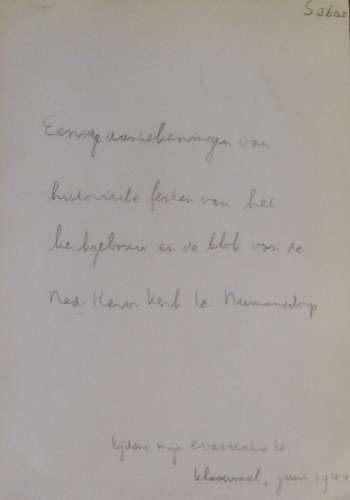 Eenige aanteekeningen van
historische feiten van het
kerkgebouw en de klok van de
Ned. Herv. Kerk te Numansdorp
tijdens mijn evacuatie te
Klaaswaal, juni 1944